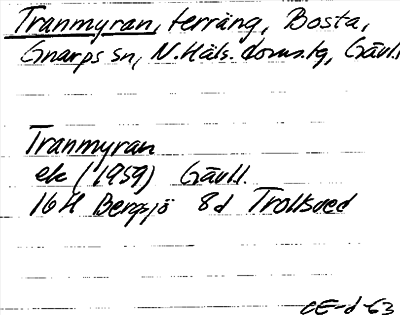 Tranmyran, terräng, Bosta,
Gnarps sn, N. Häls. doms.tg, Gävl.l
Tranmyran
ek (1959) Gävl.l.
16H Bergsjö 8d Trollsved
CE-d-63